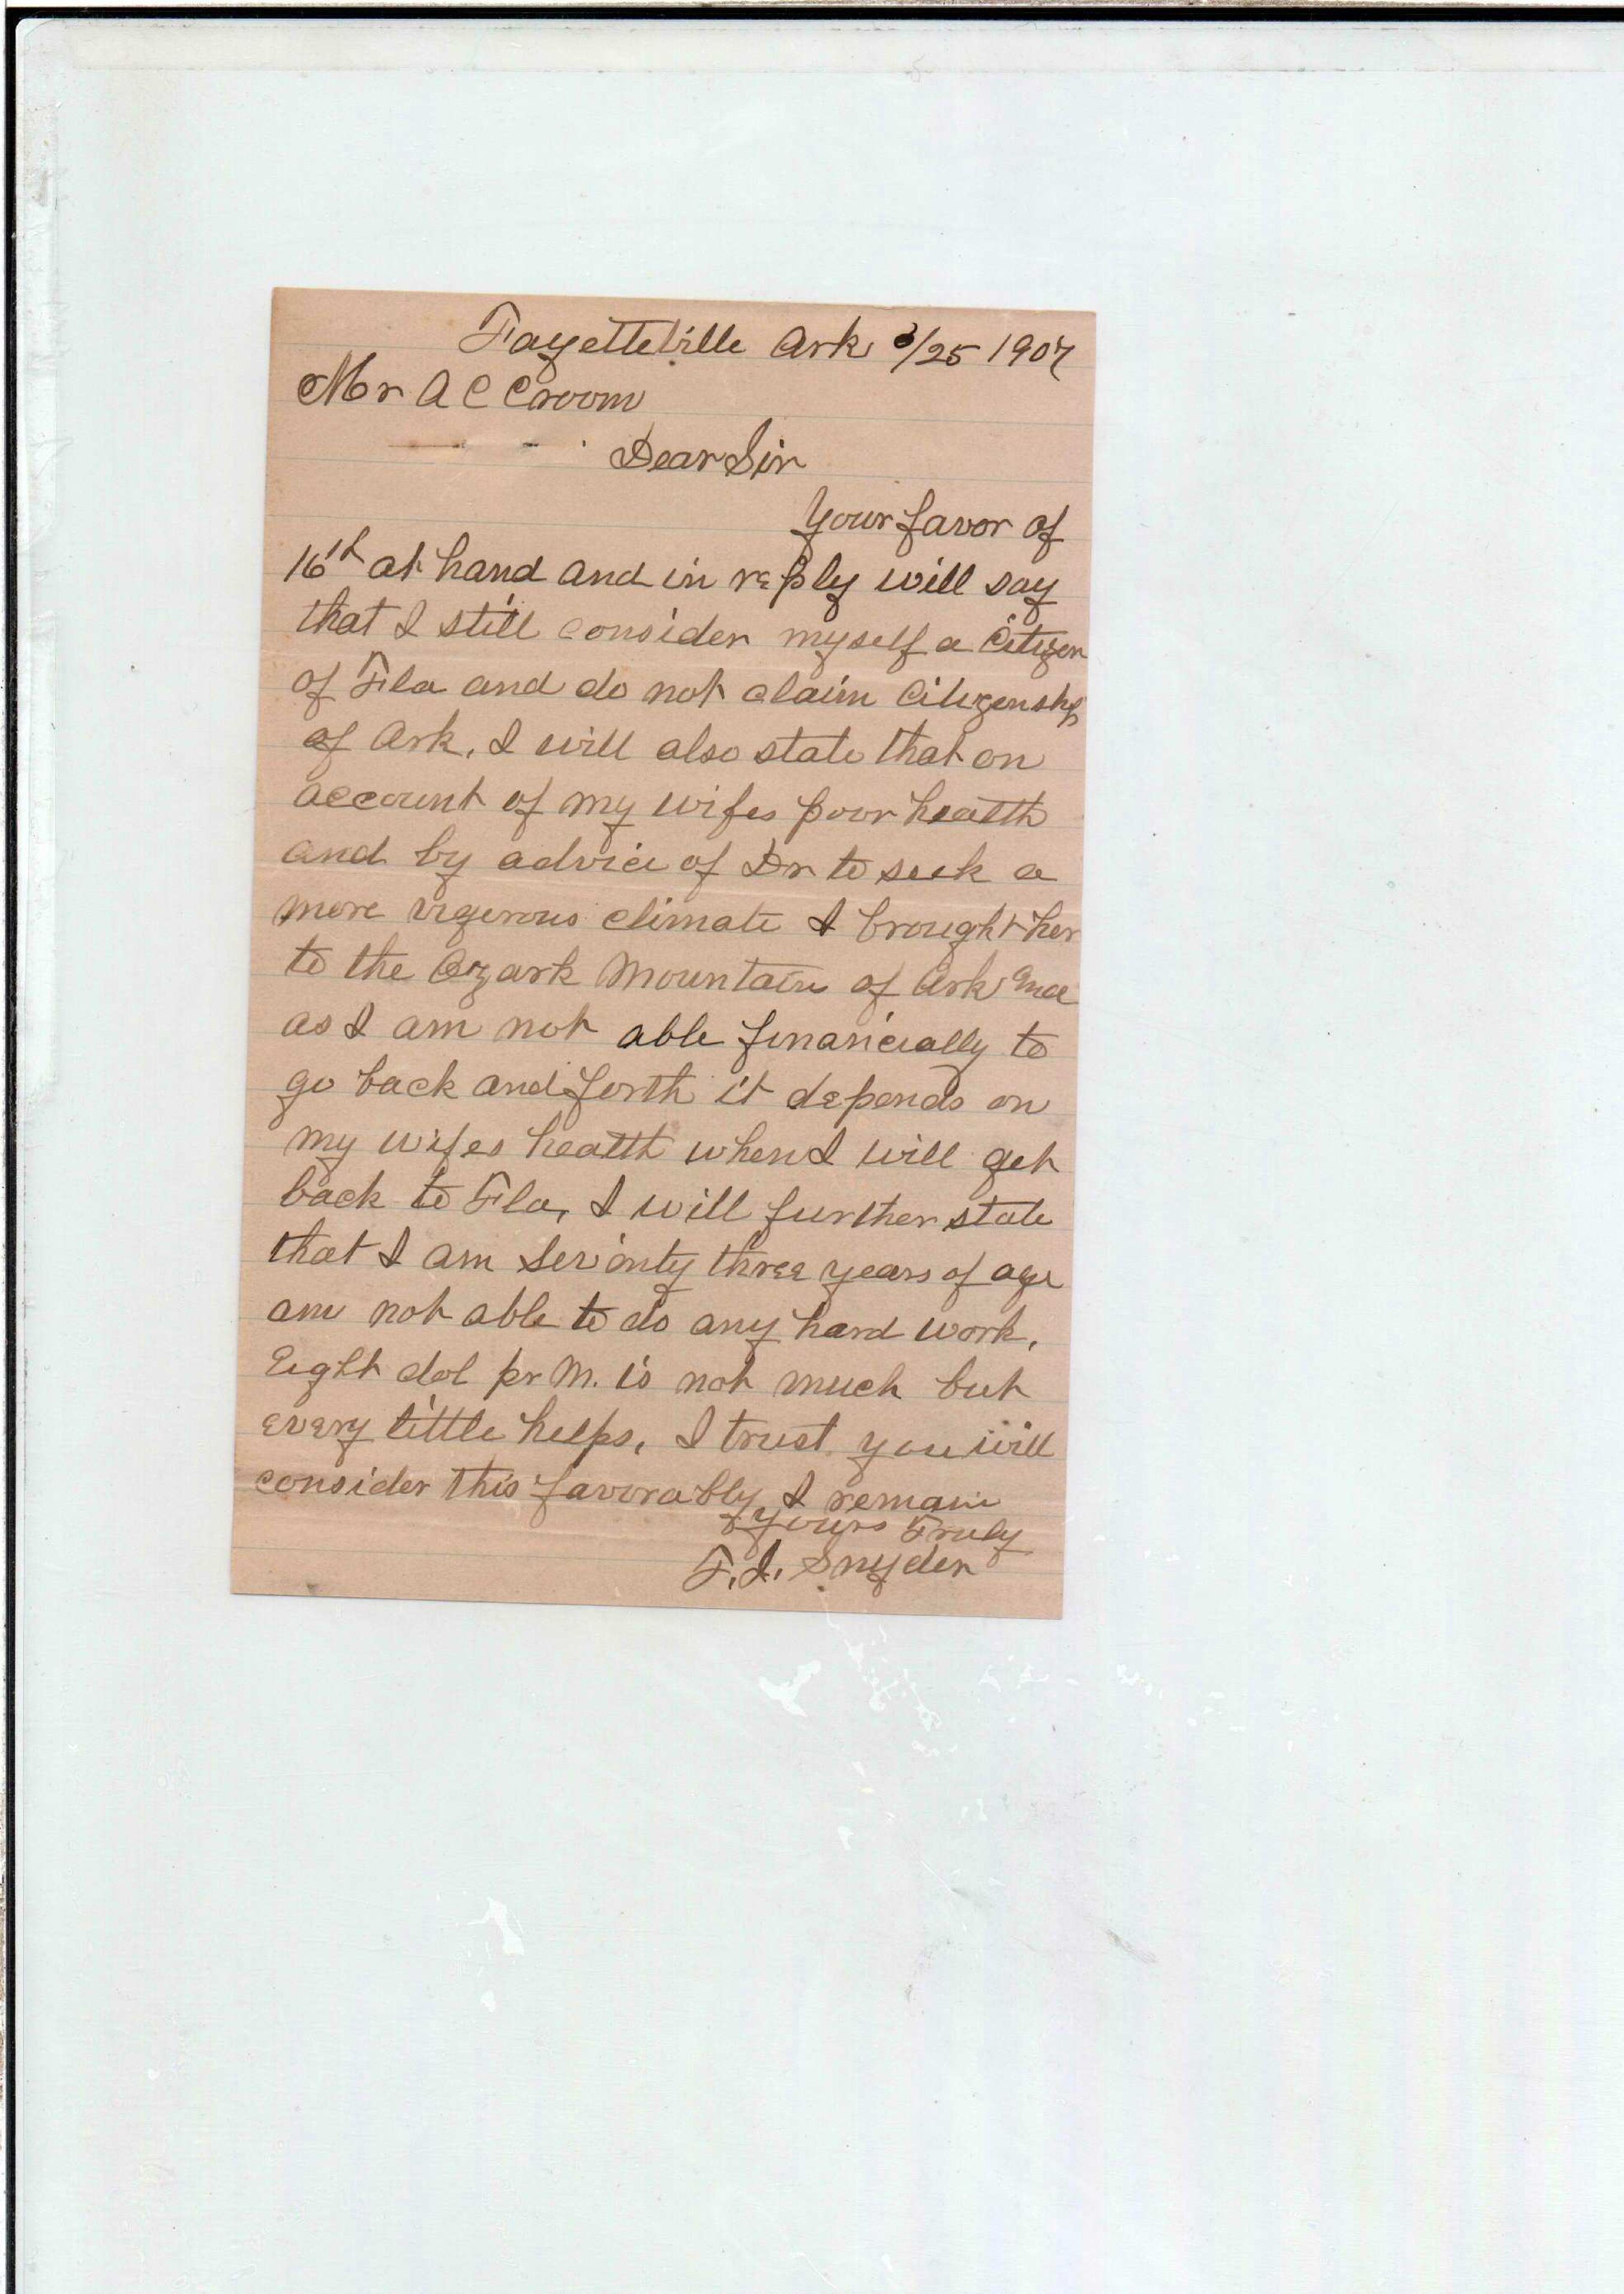 Fayetteville Ark 3/25 1907
Mr A C Croom
Dear Sir
Your favor of
16th at hand and in reply will say
that I still consider myself a Citizen
of Fla and do not claim Citizenship
of Ark. I will also state that on
account of my wifes poor health
and by advice of Dr to seek a
more vigerous climate I brought her
to the Ozark Mountain of Ark and
as I am not able financially to
go back and forth it depends on
my wifes health when I will get
back to Fla, I will further state
that I am Seventy three years of age
am not able to do any hard work.
Eight dol pr M. is not much but
every little helps, I trust you will
consider this favorably I remain
Yours Truly
Snyder